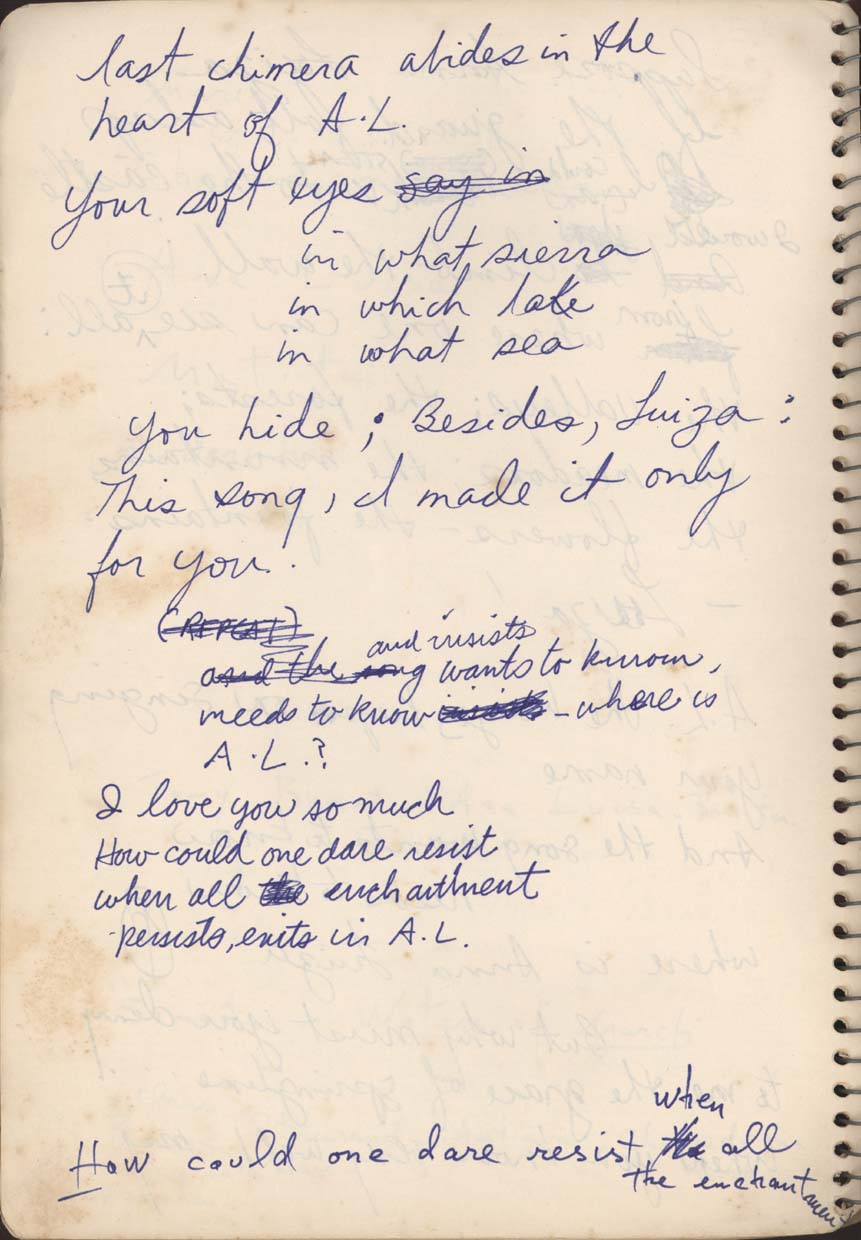 last chimera abides in the
heart of A.L.
Your soft eyes say in
in what sierra
in which lake
in what sea
You hide ; Besides, Luiza :
This song, I made it only
for you.
(REPEAT)
and insists
and the song wants to know,
needs to know insists - where is
A.L.?
I love you so much
How could one dare resist
when all the enchantment
persists, exits in A.L.
when
How could one dare resist the all
the enchantment